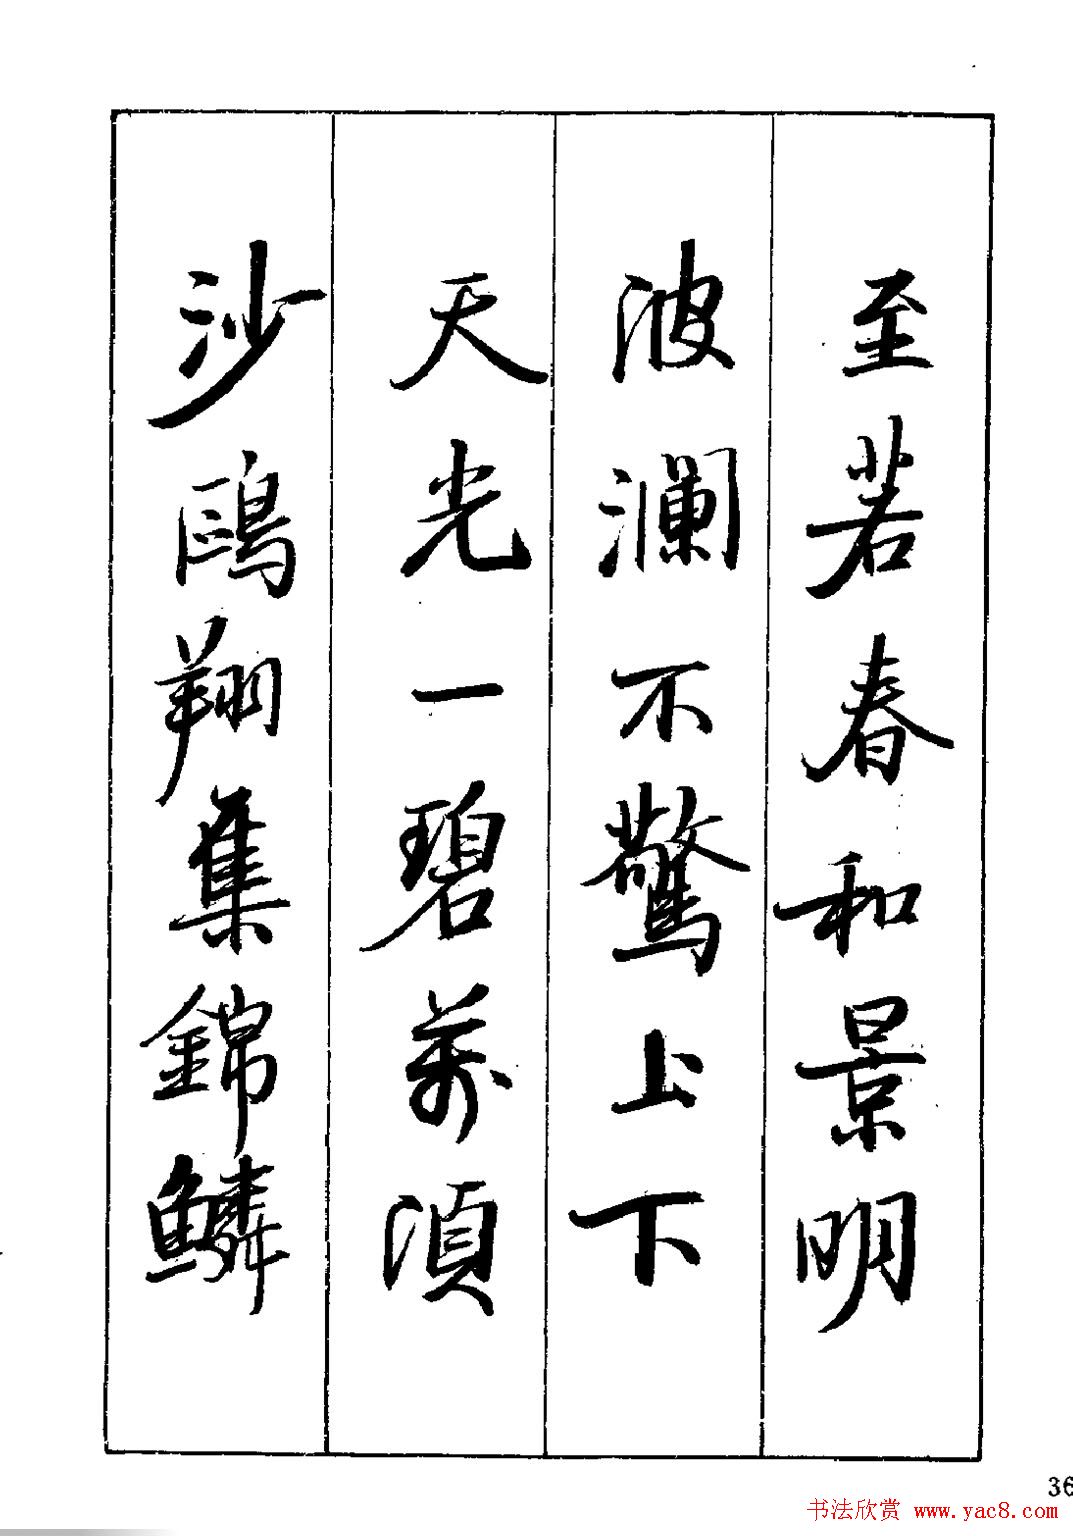 至若春和景明
波瀾不驚上下
天光一碧萬頃
沙鷗翔集錦鱗
36
书法欣赏 www.yac8.com